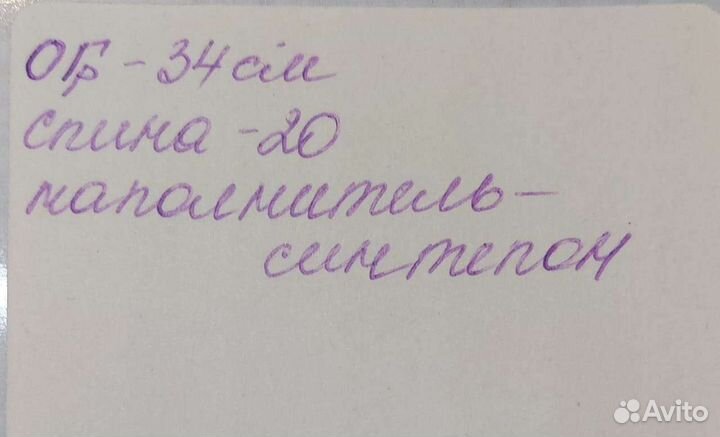 ОГр - 34 см
спина - 20
наполнитель -
синтепон
Avito